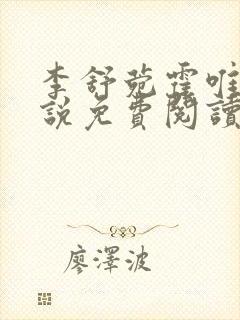 李舒菀霆唯
說免費閱讀
廖澤波